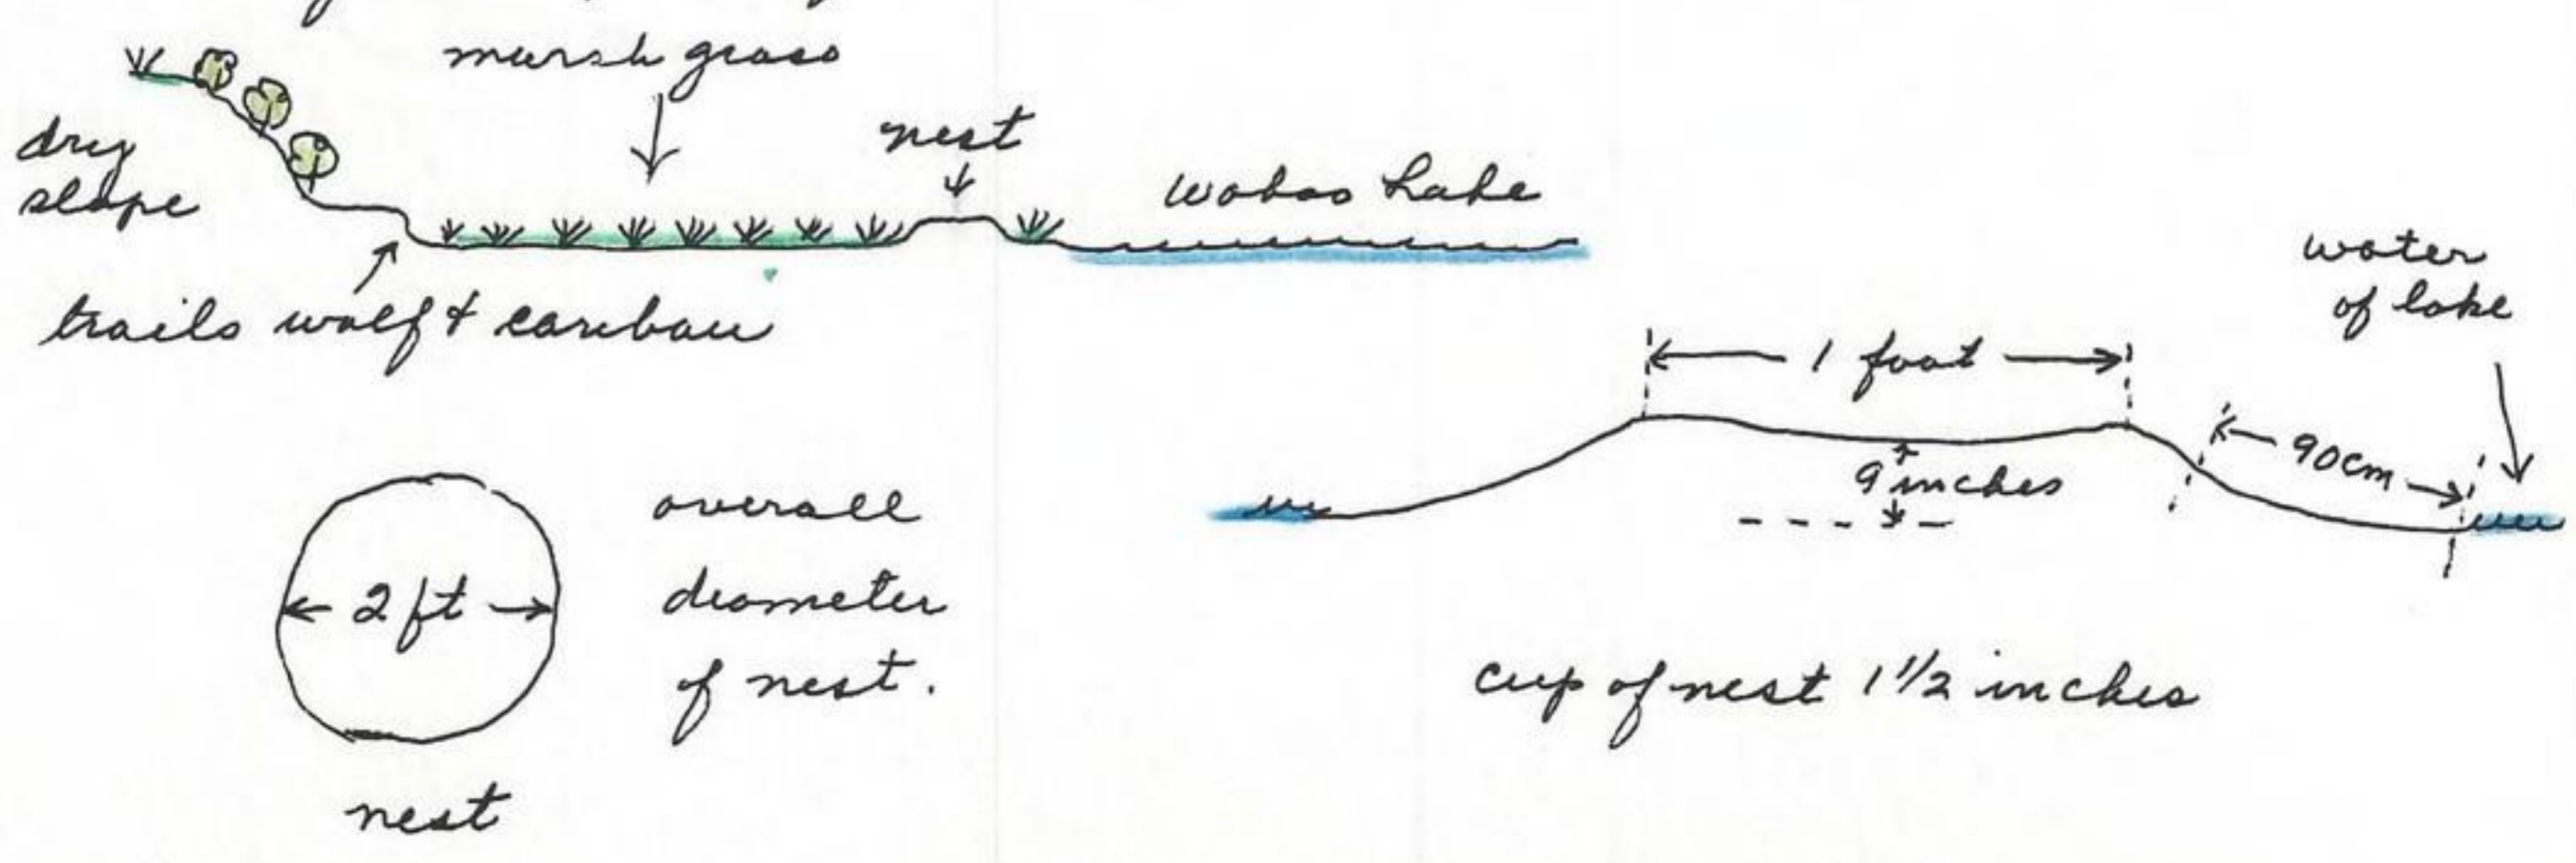 marsh grass
nest
dry
slope
wobas Lake
trails wolf & caribou
water
of lake
1 foot
90cm
9 inches
2 ft
overall
diameter
of nest.
nest
cup of nest 1 1/2 inches